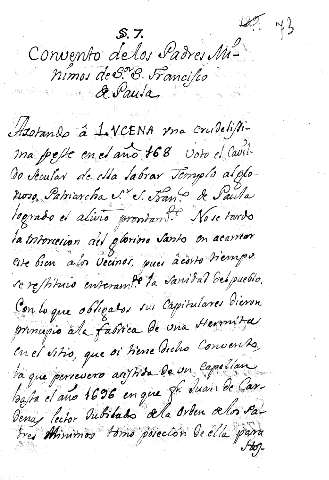 73
§. 7.
Convento de los Padres Mi-
nimos de Sn. S. Francisco
de Paula
Azotando â LUCENA una crudelissi-
ma peste en el año 168 Voto el Cavil-
do secular de ella labrar Templo al glo-
rioso Patriarcha Sr. S. Franco. de Paula
logrado el alivio prontamte. No se tardo
la intercesion del glorioso Santo en acanzar
este bien a los Vecinos, pues â corto tiempo
se restituio enteramte. la Sanidad del pueblo.
Con lo que obligados sus Capitulares dieron
principio â la fabrica de una Hermita
en el sitio, que oi tiene dicho Convento,
la que persevero asistida de un Capellan
hasta el año 1696 en que fr. Juan de Car-
denas lector Jubilado de la Orden de los Pa-
dres Minimos tomo posecion de ella para
Hos-